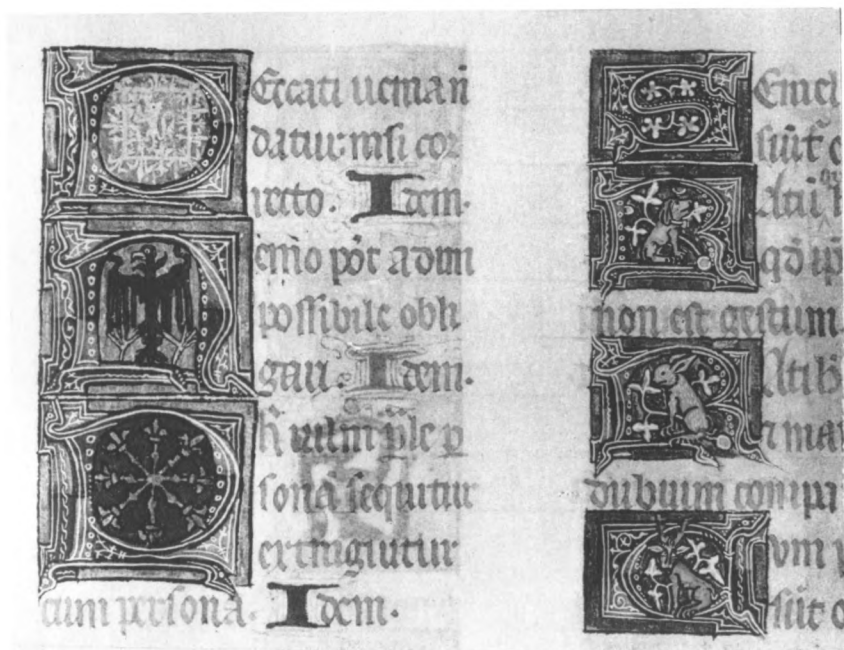 Peccati uenia n̄
datur nisi cor
recto. Idem.
Nemo pōt ad im
possibile obli
gari. Idem.
P
sonā sequitur
extinguitur
cum persona. Idem.
Semel
sūt
Ratū
qd ip
non est gestum
Ratih
dubium compa
Cum
sūt